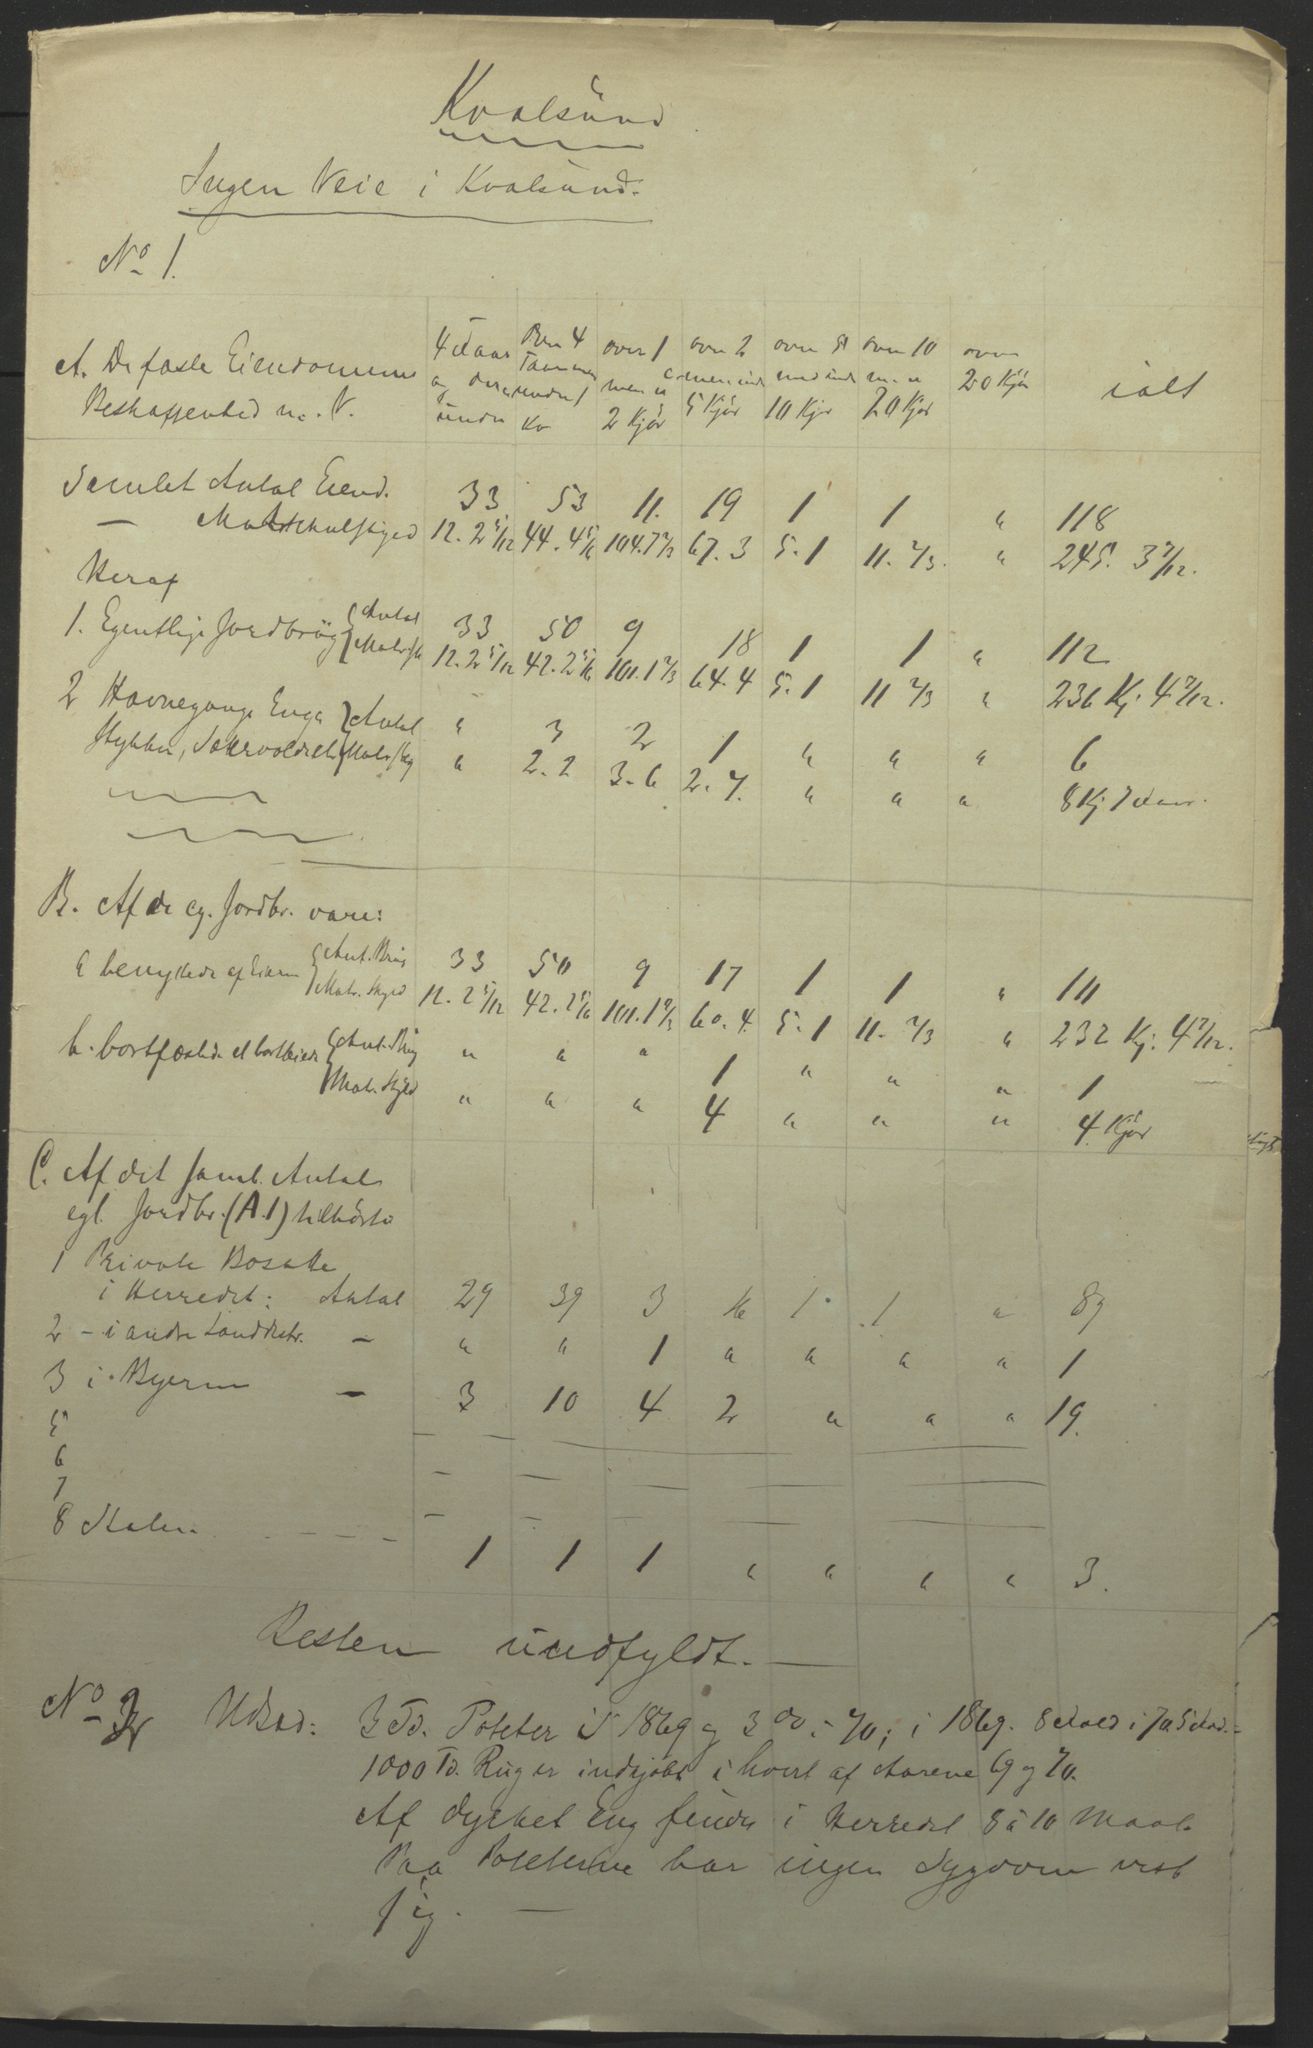 Kvalsund
Ingen Veie i Kvalsund.
No 1.
A. De faste Eiendommes Beskaffenhed m. V.
4 Daar og derunder | Over 4 under 1 Ko | over 1 men u 2 Kjør | over 2 men und 5 Kjør | over 5 und 10 Kjør | over 10 m. u 20 Kjør | over 20 Kjør | ialt
Samlet Antal Eiend. 33. 53 11. 19 1 1 " 118
— Matrikulskyld 12. 2 5/12 44. 4 5/6 104. 7 2/3 67. 3 5. 1 11. 2/3. " 245. 3 7/12.
Heraf
1. Egentlige Jordbrug { Antal 33 50 9 18 1 1 " 112
{ Matr. sk 12. 2 5/12 42. 2 5/6 101. 1 2/3 64. 4 5. 1 11 2/3 " 236 Kj. 4 7/12.
2 Havnegange Enge { Antal " 3 2 1 " " " 6
stykker, Sætervolde { Matr. sky " 2. 2 3. 6 2. 7. " " " 8 Kj 7 daar.
B. Af de eg. Jordbr. vare:
a benyttede af Eieren { Ant. Brug 33 50 9 17 1 1 " 111
{ Matr. Skyld 12. 2 5/12 42. 2 5/6 101. 1 2/3 60. 4. 5. 1 11. 2/3 " 232 Kj. 4 7/12.
b. bortfæstede el bortleiede { Ant. Brug " " " 1 " " " 1
{ Matr. Skyld " " " 4 " " " 4 Kjør
C. Af det saml. Antal
egl. Jordbr. (A.1) tilhörte
1 Private Bosatte
i Herredet: Antal 29 39 3 16 1 1 " 89
2 - i andre Landdistr. — " " 1 " " " " 1
3 i Byerne — 3 10 4 2 " " " 19.
5
6
7
8 Staten 1 1 1 " " " " 3.
Resten uudfyldt. —
No 2 Udsæd: 3 Td. Poteter i 1869 og 3 do i 70; i 1869. 8 dold i 70 5
1000 Td. Rug er indkjöbt i hvert af Aarene 69 og 70.
Af dyrket Eng findes i Herredet 8 à 10 Maal.
Paa Poteterne har ingen Sygdom vist
sig. —